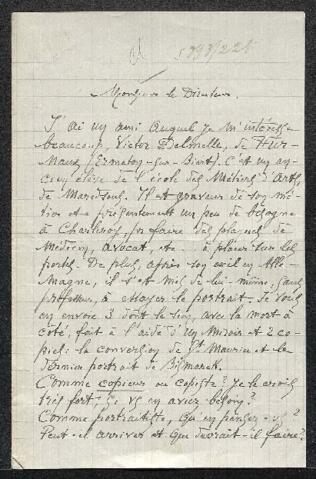 5797/225
Monsieur le Directeur.
J'ai un ami auquel je m'intéresse
beaucoup, Victor Delhelle, de Fur-
naux, Ermeton-sur-Biert. C'est un an-
cien élève de l'école des Métiers d'Art,
de Maredsous. Il est graveur de son mé-
tier et a présentement un peu de besogne
à Charleroy, pr faire des plaques de
Médecin, avocat, etc à placer sur les
portes. De plus, après son exil en Alle-
magne, il s'est mis de lui-même, sans
professeur, à essayer le portrait. Je vous
en envoie 3 dont le sien, avec la mort à
côté, fait à l'aide d'un miroir et 2 co-
pies: la conversion de St Maurin et le
dernier portrait de Bismarck.
Comme copieur ou copiste? Je le crois
très fort; en avez besoin?
Comme portraitiste, qu'en pensez-vs?
Peut-il arriver et que devrait-il faire?